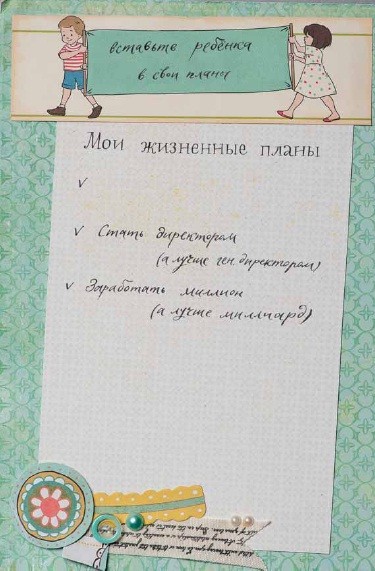 вставьте ребёнка
в свои планы
Мои жизненные планы
v
v Стать директором
(а лучше ген. директором)
v Заработать миллион
(а лучше миллиард)